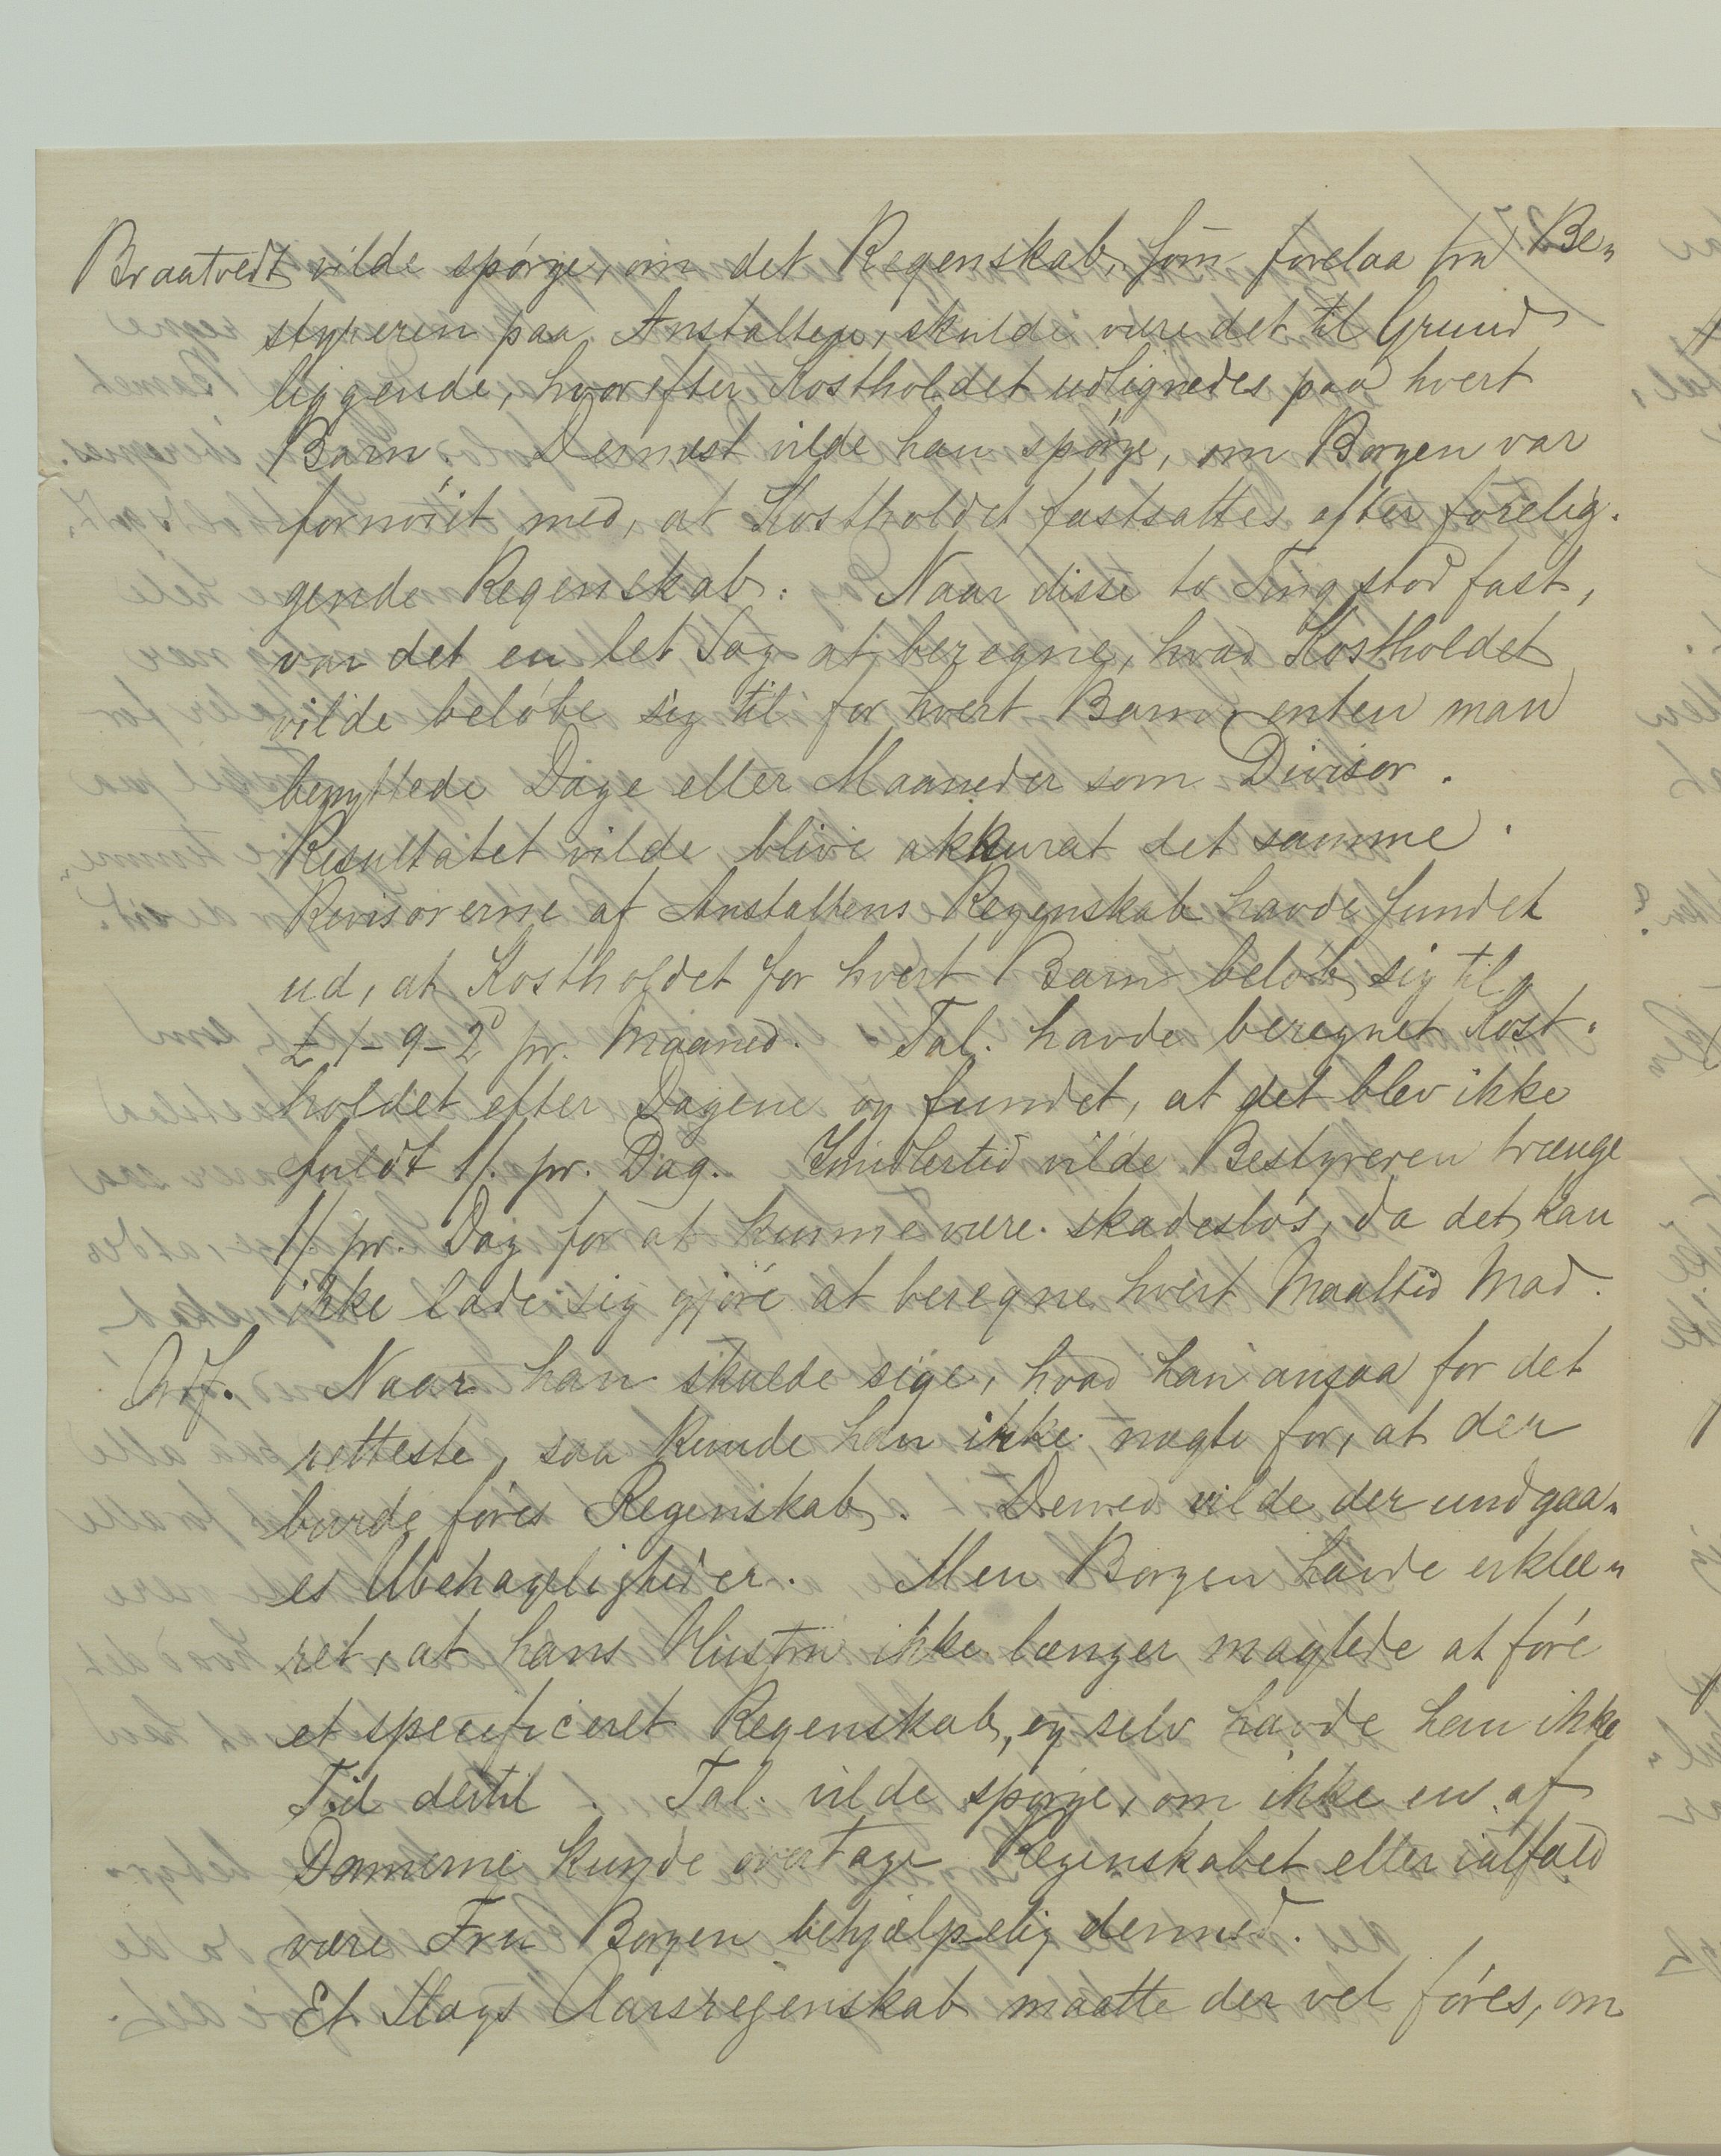 Braatvedt vilde spórge, om det Regenskab, som forelaa fra Be„
styreren paa Anstalten, skulde være det til Grund
liggende, hvorefter Kostholdet udlignedes paa hvert
Barn. Dernæst vilde han spórge, om Borgen var
fornóiet med, at Kostholdet fastsattes efter forelig.
gende Regenskab. Naar disse to Ting stod fast,
var det en let Sag at beregne, hvad Kostholdet
vilde belóbe sig til for hvert Barn, enten man
benyttede Dage eller Maaneder som Divisor.
Resultatet vilde blive akkurat det samme.
Revisorerne af Anstaltens Regenskab havde fundet
ud, at Kostholdet for hvert Barn belób sig til
£ 1-9-2ᵈ pr. Maaned. Tal. havde beregnet Kost.
holdet efter Dagene og fundet, at det blev ikke
fuldt 1/. pr. Dag. Imidlertid vilde Bestyreren trænge
1/ pr. Dag for at kunne være skadeslós, da det kan
ikke lade sig gjóre at beregne hvert Maaltid Mad.
Ordf. Naar han skulde sige, hvad han ansaa for det
retteste, saa kunde han ikke nægte for, at der
burde fóres Regenskab. Derved vilde der undgaa„
es Ubehageligheder. Men Borgen havde erklæ„
ret, at hans Hustru ikke længer magtede at fóre
et specificeret Regenskab, og selv havde han ikke
Tid dertil. Tal. vilde spórge, om ikke en af
Damerne kunde overtage Regenskabet eller ialfald
være Fru Borgen behjælpelig dermed.
Et Slags Aarsregenskab maatte der vel fóres, om